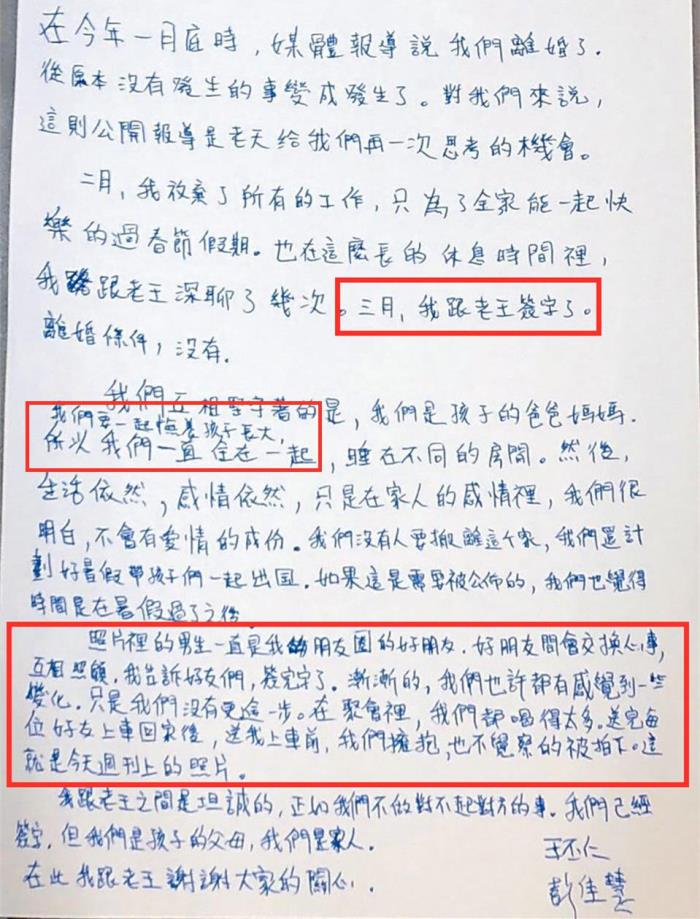 在今年一月底時，媒體報導說我們離婚了.
從原本沒有發生的事變成發生了。對我們來說，
這則公開報導是老天給我們再一次思考的機會。
二月，我放棄了所有的工作，只為了全家能一起快
樂的過春節假期。也在這麼長的休息時間裡，
我跟老王深聊了幾次。三月，我跟老王簽字了。
離婚條件，沒有.
我們互相堅守著的是，我們是孩子的爸爸媽媽.
我們要一起撫養孩子長大，
所以我們一直住在一起，睡在不同的房間。然後，
生活依然，感情依然，只是在家人的感情裡，我們很
明白，不會有愛情的成份。我們沒有人要搬離這个家，我們還計
劃好暑假帶孩子們一起出国．如果這是需要被公佈的，我們也覺得
時間是在暑假過了之後
照片裡的男生一直是我的朋友圈的好朋友．好朋友間會交換心事，
互相照顧．我告訴好友們，簽完字了．漸漸的，我們也許都有感覺到一些
變化．只是我們沒有更進一步。在聚會裡，我們都喝得太多．送完每
位好友上車回家後，送我上車前，我們擁抱，也不覺察的被拍下。這
就是今天週刊上的照片。
我跟老王之間是坦誠的，正如我們不做對不起對方的事．我們已經
簽字，但我們是孩子的父母，我們是家人．
在此我跟老王謝謝大家的關心．
王丕仁
彭佳慧